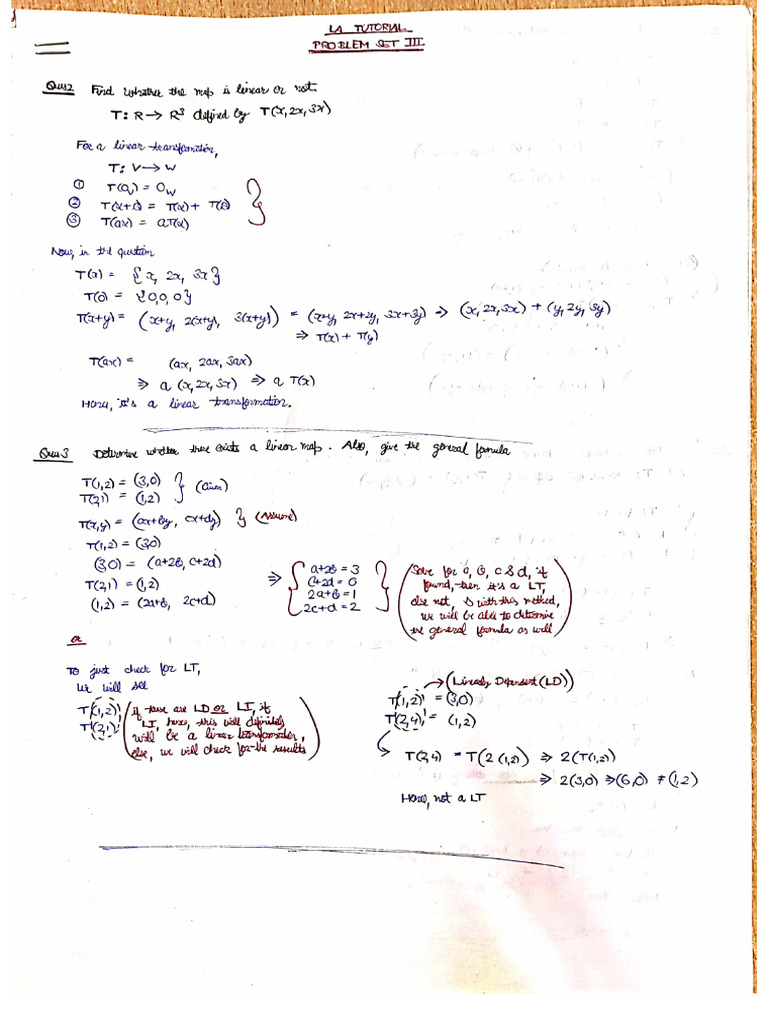 LA TUTORIAL
PROBLEM SET III
Ques2 Find whether the map is linear or not.
T: R → R³ defined by T(x, 2x, 3x)
For a linear transformation,
T: V → W
① T(0ᵥ) = 0w
②
③ T(ax) = aT(x)
Now, in the question
T(x) = {x, 2x, 3x}
T(0) = {0,0,0}
T(x+y) = (x+y, 2(x+y), 3(x+y)) = (x+y, 2x+2y, 3x+3y) ⇒ (x, 2x, 3x) + (y, 2y, 3y)
⇒ T(x) + T(y)
T(ax) = (ax, 2ax, 3ax)
⇒ a (x, 2x, 3x) ⇒ a T(x)
Hence, it's a linear transformation.
Ques 3 Determine whether there exists a linear map. Also, give the general formula
T(1,2) = (3,0)
T(2,1) = (1,2) } (Given)
T(x,y) = (ax+by, cx+dy) } (Assume)
T(1,2) = (3,0)
(3,0) = (a+2b, c+2d)
T(2,1) = (1,2)
(1,2) = (2a+b, 2c+d)
⇒ { a+2b = 3
c+2d = 0
2a+b = 1
2c+d = 2 }
(Solve for a, b, c & d, if
found, then it's a LT,
else not, & with this method,
we will be able to determine
the general formula as well)
or
To just check for LT,
we will see
T(1,2)
T(2,1)
(if these are LD or LI, if
LI, hence, this will definitely
will be a linear transformation,
else, we will check for the results)
→ (Linearly Dependent (LD))
T(1,2) = (3,0)
T(2,4) = (1,2)
T(2,4) = T(2(1,2)) ⇒ 2(T(1,2))
⇒ 2(3,0) ⇒ (6,0) ≠ (1,2)
Hence, not a LT